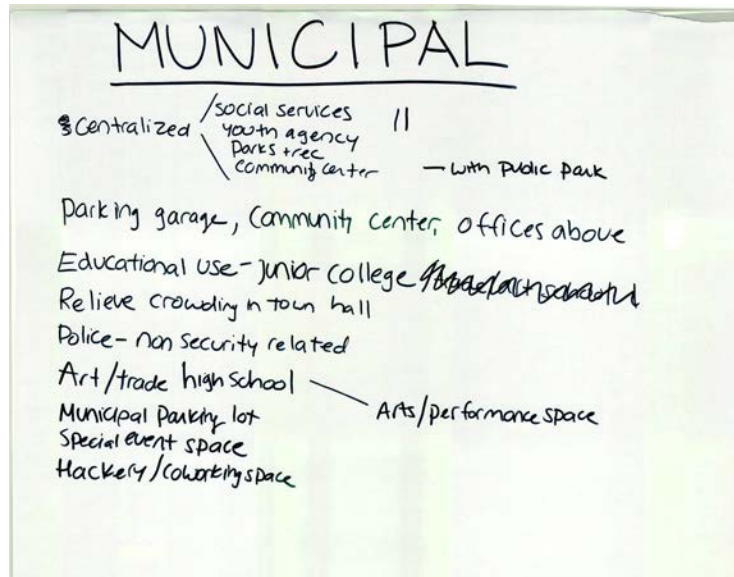 MUNICIPAL
Centralized / social services
youth agency
Parks + rec
community center — with public park
Parking garage, Community center, offices above
Educational use - junior college
Relieve crowding in town hall
Police - non security related
Art/trade high school
Arts/performance space
Municipal Parking lot
Special event space
Hackery/coworking space